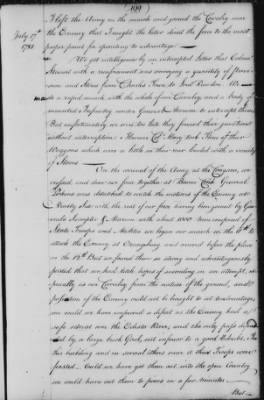 499
July 17th
1781
I left the Army on the march and joined the Cavalry near
the Enemy that I might the better lead the force to the most
proper point for operating to advantage.
We got intelligence by an intercepted letter that Colonel
Stewart with a reinforcement was convoying a quantity of
and Stores from Charles Town to Lord Rawdon. We
a rapid march with the whole of our Cavalry and a body of
mounted Infantry under General Marion to intercept them
But unfortunately we were too late they formed their junction
without interruption. Col. Mary took Nine of their
Waggons which were a little in their rear loaded with a variety
of Stores
On the arrival of the Army at the Congaree, we
crossed and drew our force together at Beaver Creek General
was detached to watch the motions of the Enemy at
Ninety Six with the rest of our force having been joined by Gene
rals Sumpter & Marion with about 1000 Men composed of
State Troops and Militia we began our march on the 6th to
attack the Enemy at Orangeburg and arrived before the place
on the 12th But we found them so strong and advantageously
posted that we had little hopes of succeeding in an attempt, es
pecially as our Cavalry from the nature of the ground, and
position of the Enemy could not be brought to act
we could have improved a defeat as the Enemy had a
safe retreat over the Edisto River, and the only pass is
ded by a large brick Goal, not inferior to a good Redoubt. In
this building and in several others near it their Troops were
posted. Could we have got them out into the open Country
we could have cut them to pieces in a few minutes
But